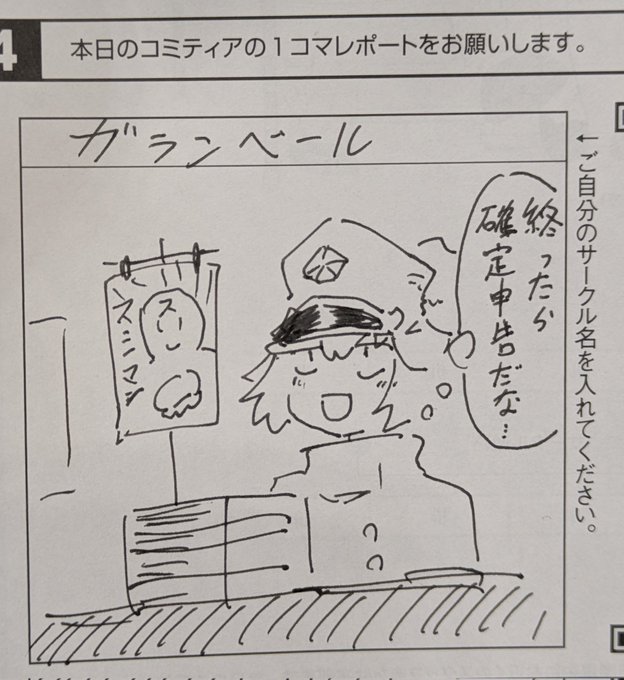 4
本日のコミティアの1コマレポートをお願いします。
ガランベール
←ご自分のサークル名を入れてください。
終ったら
確定申告だな…